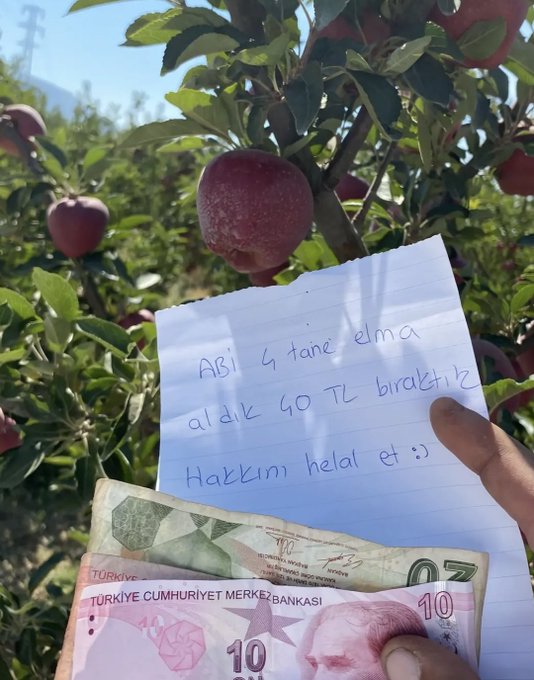 ABİ 4 tane elma
aldık 40 TL bıraktık
Hakkını helal et :)
20
TÜRKİYE
TÜRKİYE CUMHURİYET MERKEZ BANKASI
10
10
10